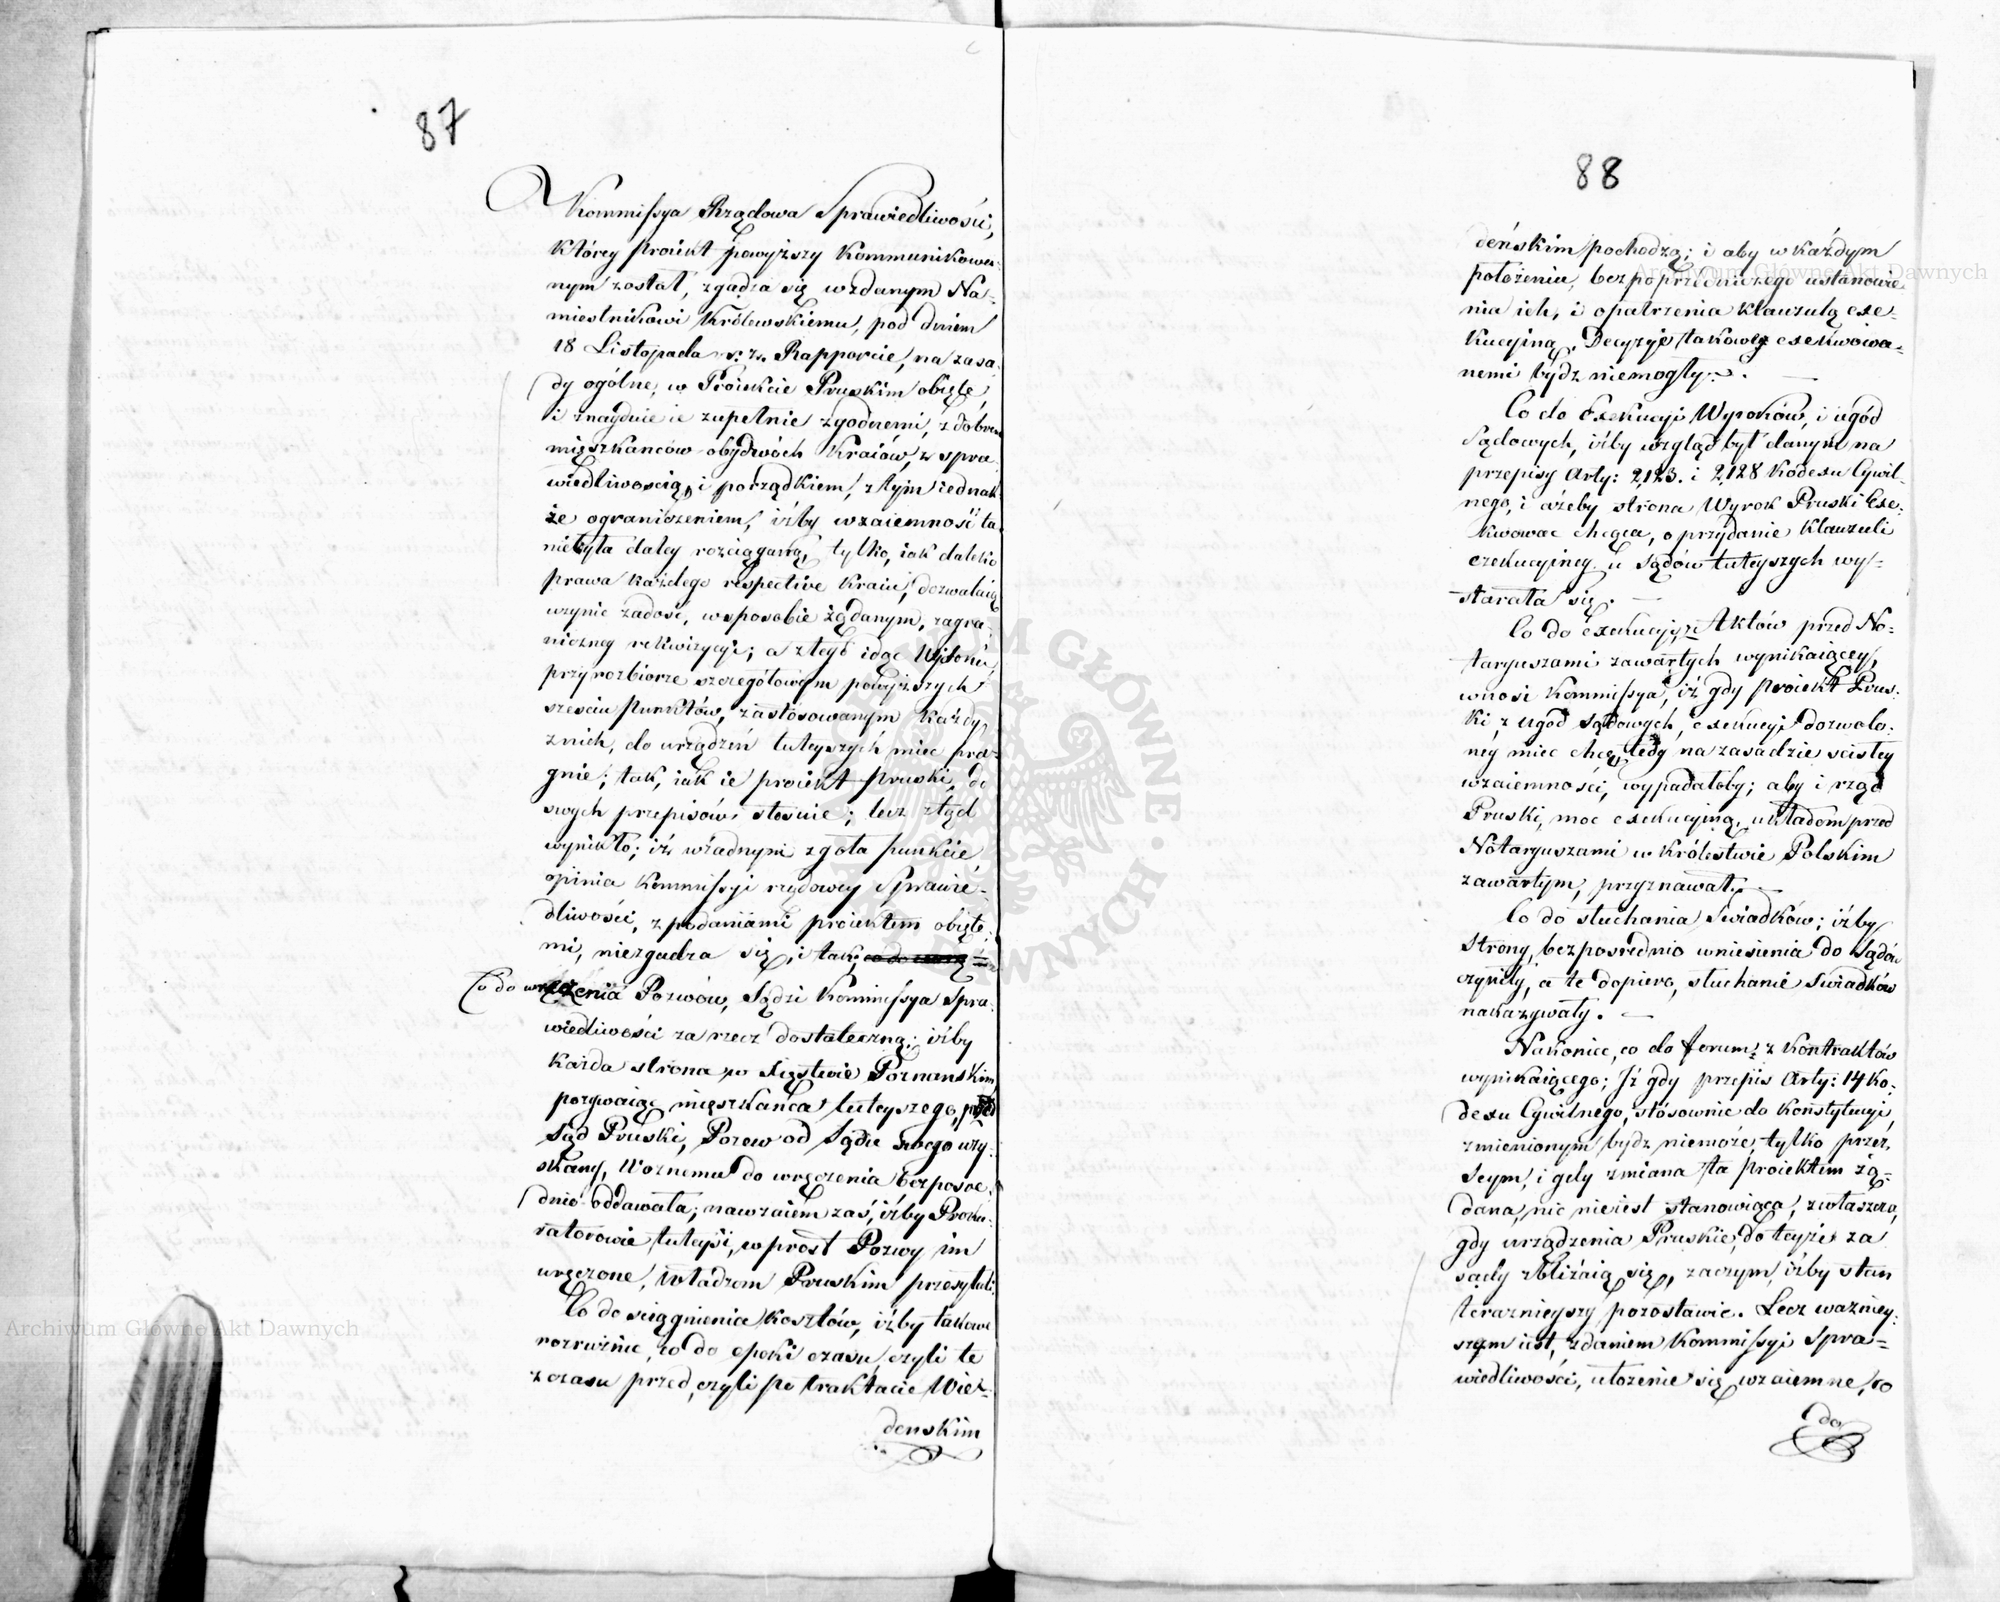 87
Kommissya Rządowa Sprawiedliwości,
którey proiekt powyższy kommunikowa-
nym został, zgadza się w zdanym Na-
miestnikowi Królewskiemu, pod dniem
18 Listopada r: z: Rapporcie, na zasa-
dy ogólne, w Proiekcie Pruskim obięte,
i znayduie ie zupełnie zgodnemi, z dobrem
mięszkańców obydwóch Kraiów, z spra-
wiedliwością, i porządkiem, z tym iednak-
że ograniczeniem, iżby wzaiemność ta
niebyła daley rozciąganą, tylko, iak daleko
prawa każdego respective kraiu, dozwalaią
uczynić zadość, w sposobie żądanym, zagra-
niczney rekwizycyi; a ztąd idąc
przy rozbiorze szczegółowym powyższych
sześciu punktów, zastosowanym każdy
z nich, do urządzeń tuteyszych mieć pra-
gnie; tak, iak ie proiekt pruski, do
swych przepisów stosuie; lecz ztąd
wynikło; iż w żadnym zgoła punkcie
opinia Kommissyi rządowey Sprawie-
dliwości, z podaniami proiektem obięte-
mi, niezgadza się, i tak;
Co do wręczenia Pozwów, Sądzi Kommissya Spra-
wiedliwości za rzecz dostateczną; iżby
każda strona w Xięstwie Poznańskim,
pozywaiąc mięszkańca tuteyszego, przed
Sąd Pruski, Pozew od Sądu swego uzy-
skany, Woznemu do wręczenia bezpośre-
dnio oddawała; nawzaiem zaś, iżby Proku-
ratorowie tuteysi, wprost Pozwy im
wręczone, władzom Pruskim przesyłali.
Co do ściągnienia kosztów, iżby takowe
rozróżnić, co do epoki czasu, czyli te
z czasu przed, czyli po traktacie Wie-
denskim
88
deńskim pochodzą; i aby w każdym
położeniu, bez poprzedniczego ustanowie-
nia ich, i opatrzenia klauzulą exe-
kucyiną, Decyzye takowe exekwowa-
nemi bydz niemogły.
Co do Exekucyi Wyroków, i ugód
Sądowych, iżby wzgląd był danym na
przepisy Arty: 2,123. i 2,128 Kodexu Cywil-
nego, i ażeby strona Wyrok Pruski Exe-
kwować chcąca, o przydanie Klauzuli
exekucyiney u Sądów tuteyszych wy-
starała się.
Co do exekucyi, z Aktów przed No-
taryuszami zawartych wynikaiącey,
wnosi Kommissya, iż gdy proiekt Prus-
ki, z ugod sądowych, exekucyi dozwolo-
ney mieć chce, tedy na zasadzie ścisłey
wzaiemności, wypadałoby; aby i rząd
Pruski, moc exekucyiną, układom przed
Notaryuszami w Królestwie Polskim
zawartym, przyznawał.
Co do słuchania Swiadków; iżby
Strony, bezpośrednio wniesienia do Sądów
czyniły, a te dopiero, słuchanie Swiadków
nakazywały.
Nakoniec, co do forum, z Kontraktów
wynikaiącego; Iż gdy przepis Arty: 14 Ko-
dexu Cywilnego, stósownie do Konstytucyi,
zmienionym bydz niemoże, tylko przez
Seym, i gdy zmiana ta proiektem żą-
dana, nic nieiest stanowiąca, zwłaszcza,
gdy urządzenia Pruskie, do teyże za-
sady zbliżaią się, zaczym, iżby stan
teraznieyszy pozostawić. Lecz ważniey-
szym iest, zdaniem Kommissyi Spra-
wiedliwości, ułożenie się wzaiemne, co
do
Archiwum Główne Akt Dawnych
Archiwum Główne Akt Dawnych
ARCHIWUM GŁÓWNE AKT DAWNYCH